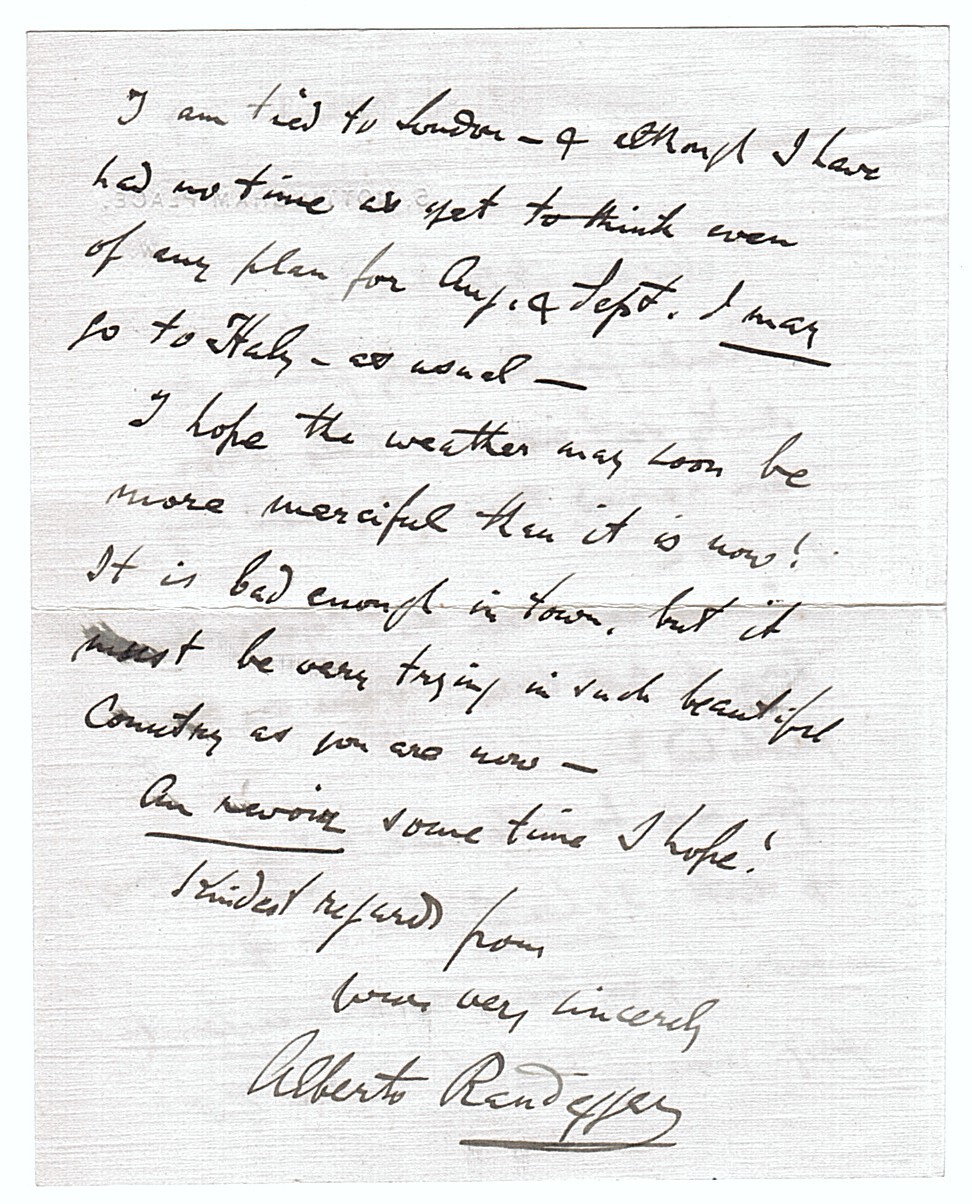 I am tied to London – & although I have
had no time as yet to think even
of any plan for Aug. & Sept. I may
go to Italy – as usual –
I hope the weather may soon be
more merciful than it is now!
It is bad enough in town, but it
must be very trying in such beautiful
Country as you are now –
Au revoir some time I hope!
Kindest regards from
yours very sincerely
Alberto Randegger